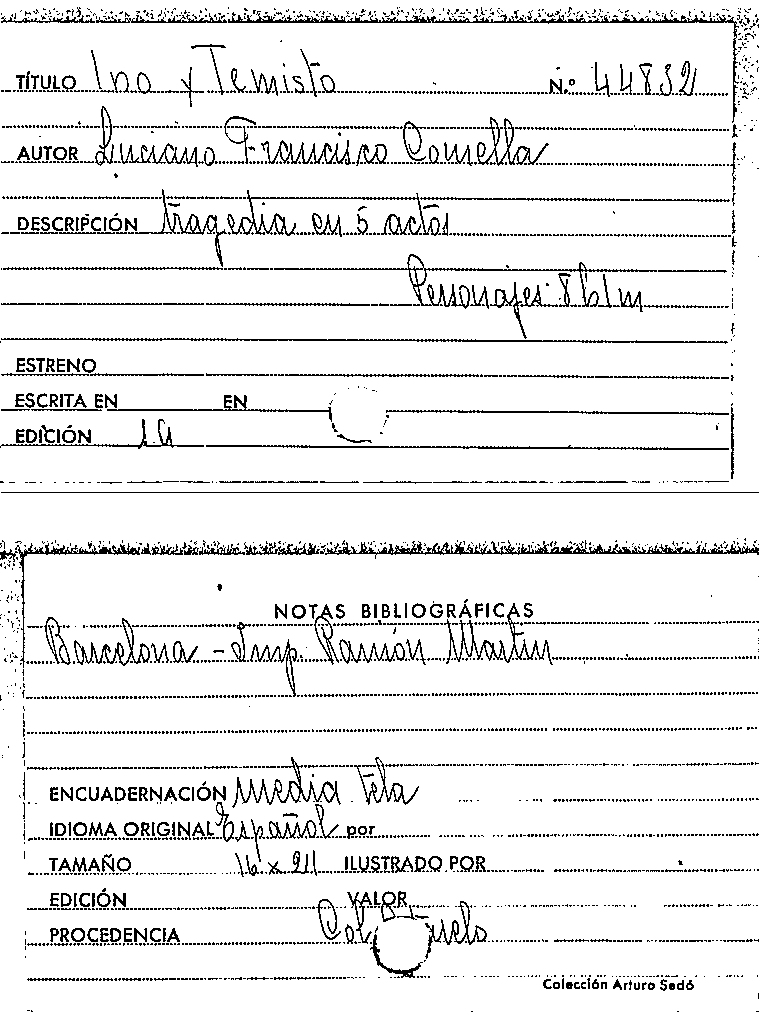 TÍTULO Ino y Temisto N.º 44832
AUTOR Luciano Francisco Comella
DESCRIPCIÓN tragedia en 5 actos
Personajes 8 h 1 m
ESTRENO
ESCRITA EN EN
EDICIÓN 1a
NOTAS BIBLIOGRÁFICAS
Barcelona - Imp. Ramón Martin
ENCUADERNACIÓN media tela
IDIOMA ORIGINAL Español por
TAMAÑO 16 x 211 ILUSTRADO POR
EDICIÓN VALOR
PROCEDENCIA Col.
Colección Arturo Sedó